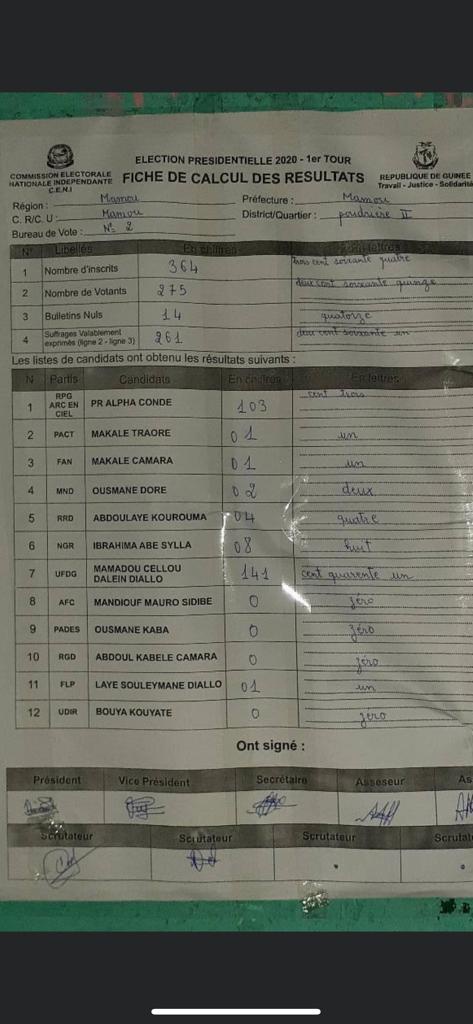 ELECTION PRESIDENTIELLE 2020 - 1er TOUR
COMMISSION ELECTORALE NATIONALE INDEPENDANTE C.E.N.I
FICHE DE CALCUL DES RESULTATS
REPUBLIQUE DE GUINEE
Travail - Justice - Solidarité
Région : Mamou Préfecture : Mamou
C. R/C. U : Mamou District/Quartier : poudrière II
Bureau de Vote : N° 2
N° Libellés En chiffres En lettres
1 Nombre d'inscrits 364 trois cent soixante quatre
2 Nombre de Votants 275 deux cent soixante quinze
3 Bulletins Nuls 14 quatorze
4 Suffrages Valablement exprimés (ligne 2 - ligne 3) 261 deux cent soixante un
Les listes de candidats ont obtenu les résultats suivants :
N Partis Candidats En chiffres En lettres
1 RPG ARC EN CIEL PR ALPHA CONDE 103 cent trois
2 PACT MAKALE TRAORE 01 un
3 FAN MAKALE CAMARA 01 un
4 MND OUSMANE DORE 02 deux
5 RRD ABDOULAYE KOUROUMA 04 quatre
6 NGR IBRAHIMA ABE SYLLA 08 huit
7 UFDG MAMADOU CELLOU DALEIN DIALLO 141 cent quarente un
8 AFC MANDIOUF MAURO SIDIBE 0 zéro
9 PADES OUSMANE KABA 0 zéro
10 RGD ABDOUL KABELE CAMARA 0 zéro
11 FLP LAYE SOULEYMANE DIALLO 01 un
12 UDIR BOUYA KOUYATE 0 zéro
Ont signé :
Président Vice Président Secrétaire Asseseur As
Scrutateur Scrutateur Scrutateur Scrutat